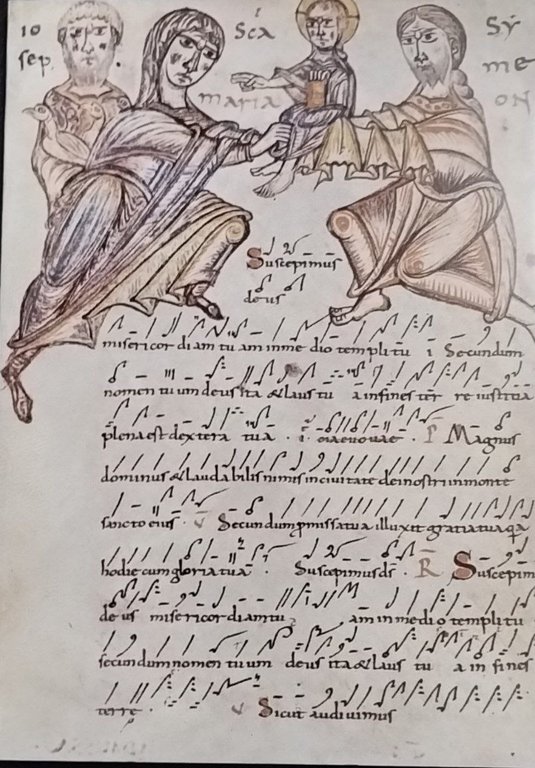 IO
sep
S̄CA
maria
SȲ
me
ON
Suscepimus
deus
misericordiam tuam inme dio templi tui Secundum
nomen tuum deus ita & laus tu a infines terr re iustitia
plena est dextera tua . euouae . P Magnus
dominus & laudabilis nimis inciuitate dei nostri inmonte
sancto eius . V Secundum promissa tua illuxit gratia tua qa
hodie cum gloria tua . Suscepimus ds . R Suscepim
deus misericordiam tu am in medi o templi tu
secundum nomen tuum deus ita & laus tu a in fines
terre . V Sicut audiuimus